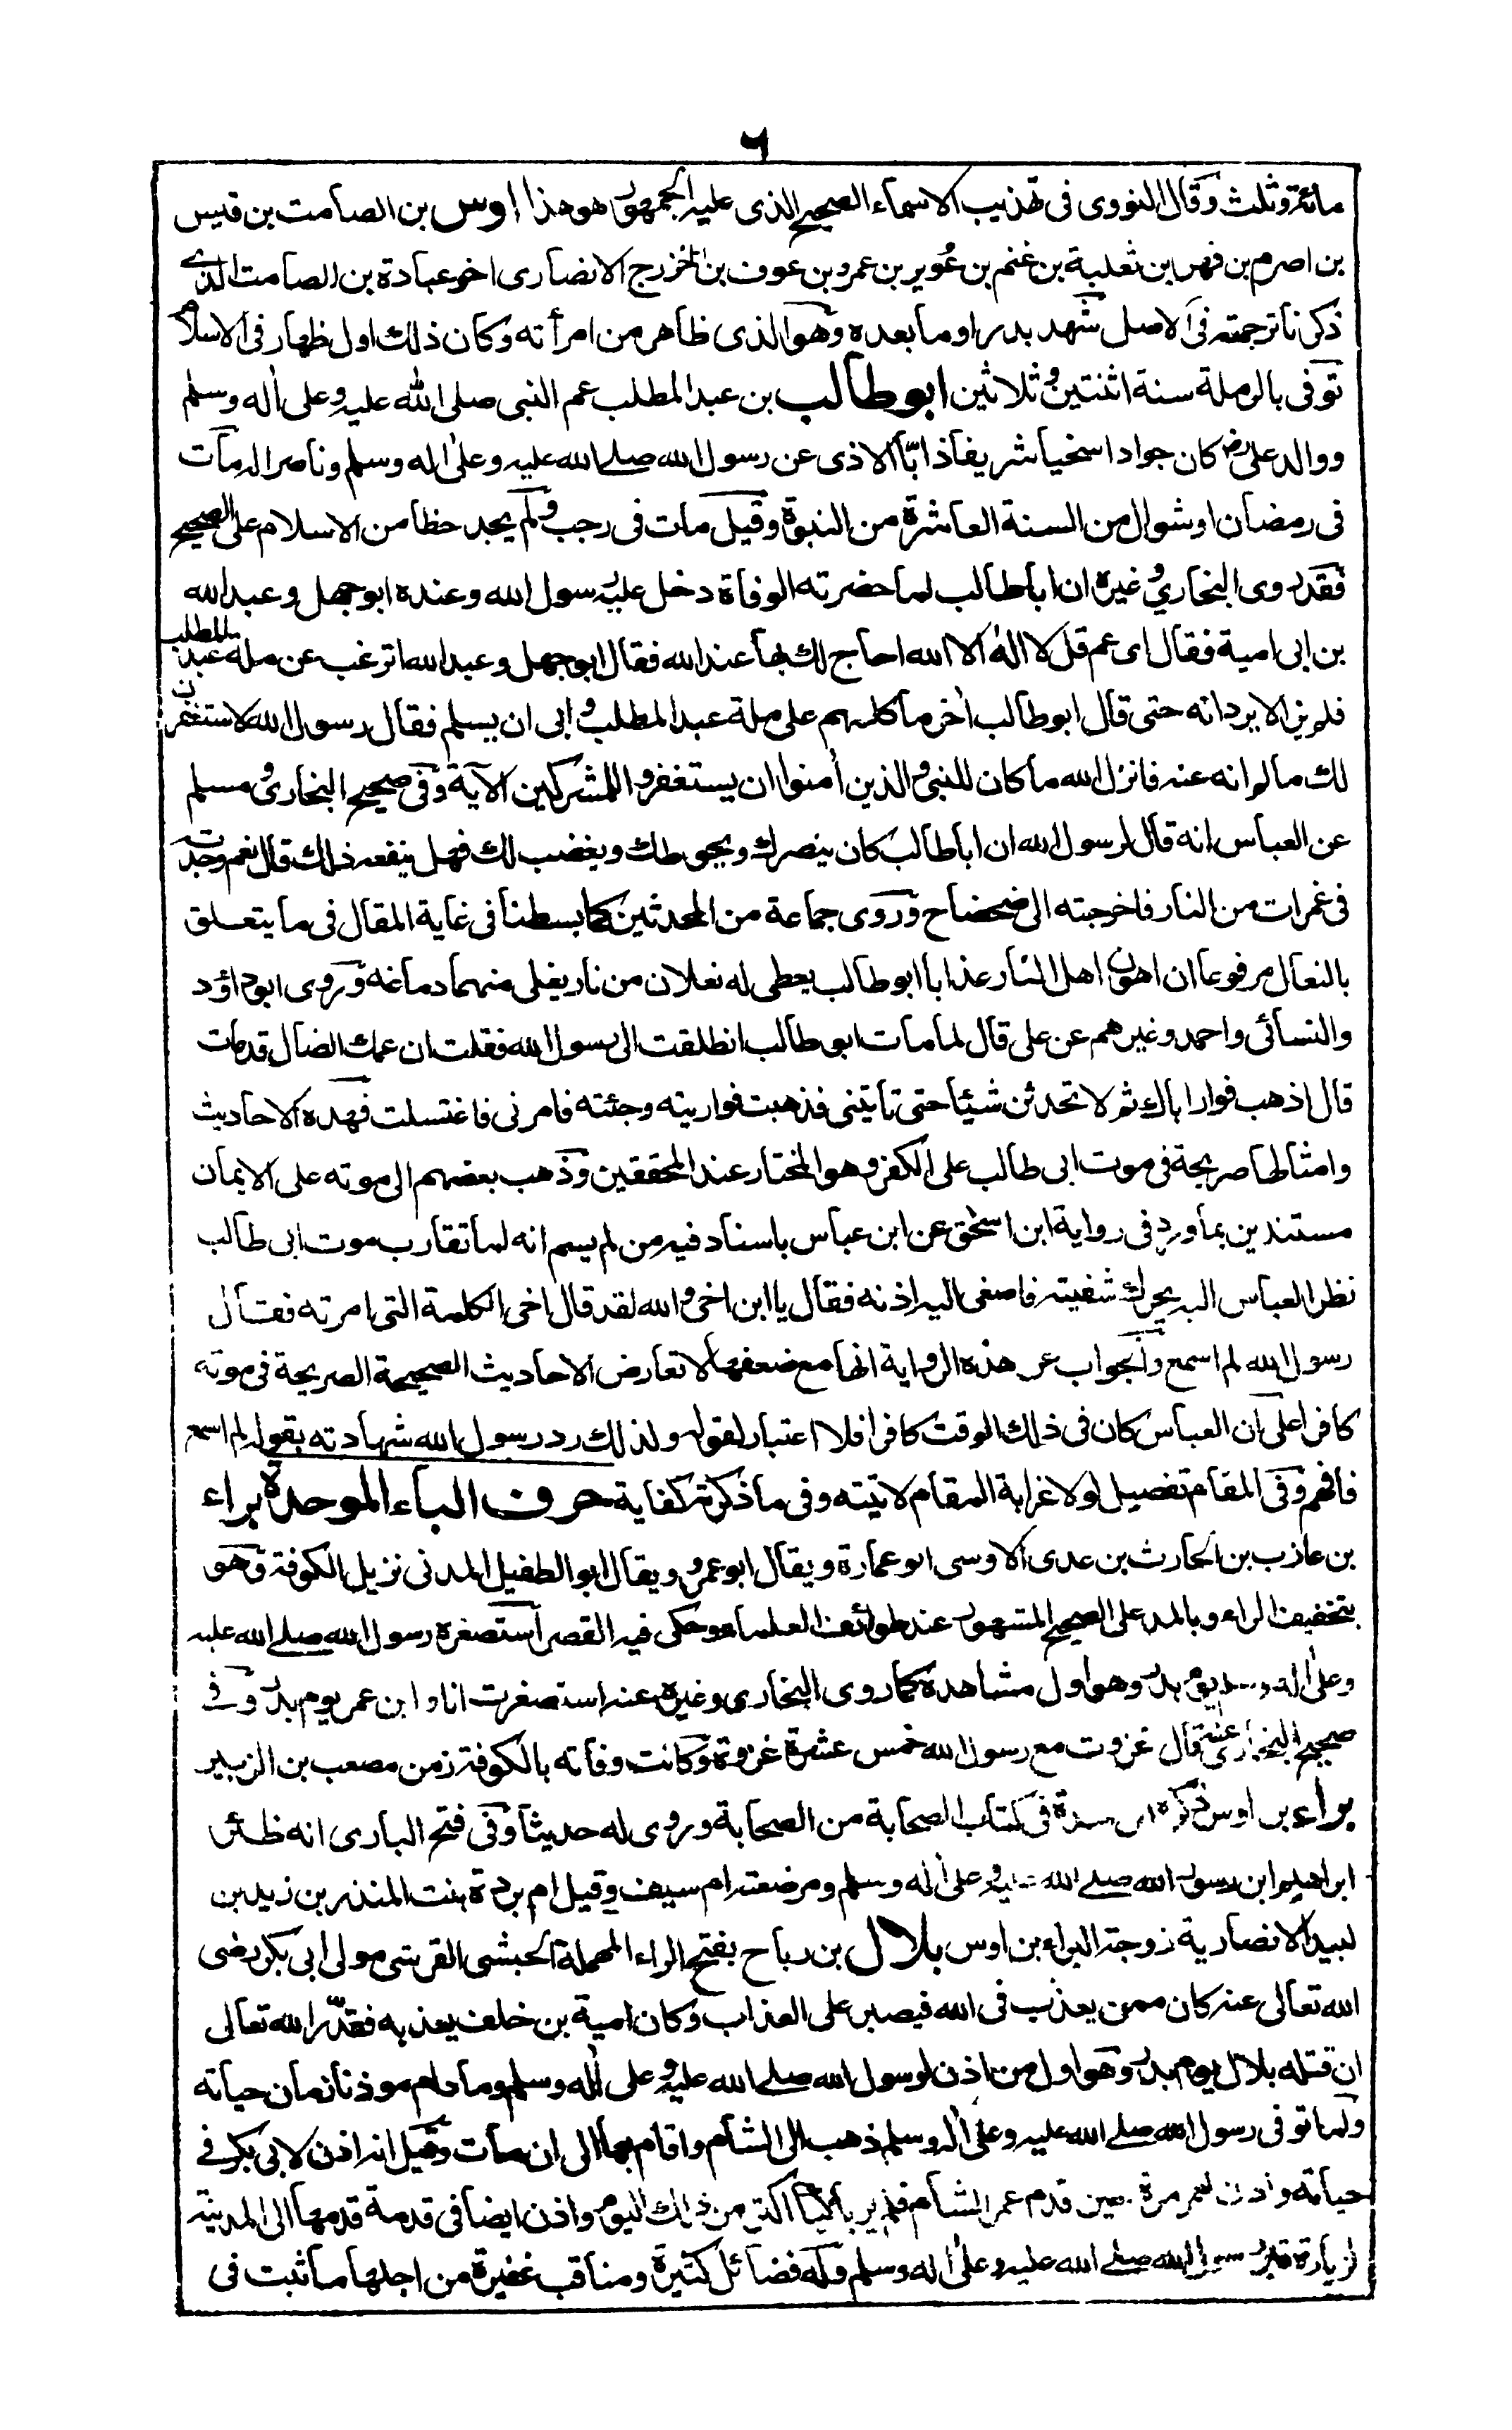 ٦
مائة وثلث وقال النووى فى تهذيب الاسماء الصحيح الذى عليه الجمهور هو هذا اوس بن الصامت بن قيس
بن اصرم بن فهر ابن ثعلبة بن غنم بن عوير بن عمرو بن عوف بن الخزرج الانصارى اخو عبادة بن الصامت الذے
ذكرنا ترجمته فى الاصل شهد بدرا وما بعده وهو الذى ظاهر من امرأته وكان ذلك اول ظهار فى الاسلام
توفى بالرملة سنة اثنتين وثلاثين ابو طالب بن عبد المطلب عم النبى صلى الله عليه وعلى أله وسلم
ووالد على رض كان جوادا سخيا شريفا ذابّا الاذى عن رسول الله صلے الله عليه وعلىٰ اله وسلم وناصرا له مات
فى رمضان او شوال من السنة العاشرة من النبوة وقيل مات فى رجب ولم يجد حظا من الاسلام على الصحيح
فقد روى البخاري وغيره ان اباطالب لما حضرته الوفاة دخل عليه رسول الله وعنده ابو جهل وعبد الله
بن ابى امية فقال اى عم قل لا اله الا الله احاج لك بها عند الله فقال ابو جهل وعبد الله اترغب عن ملة عبد المطلب
فلم يزالا يردانه حتى قال ابو طالب أخر ما كلمهم على ملة عبد المطلب وابى ان يسلم فقال رسول الله لاستغفرن
لك ما لم انه عنه فانزل الله ما كان للنبى والذين أمنوا ان يستغفروا للمشركين الآية وفى صحيح البخارى ومسلم
عن العباس انه قال لرسول الله ان اباطالب كان ينصرك ويحوطك ويغضب لك فهل ينفعه ذلك قال نعم وجدته
فى غمرات من النار فاخرجته الى ضحضاح وروى جماعة من المحدثين كما بسطنا فى غاية المقال فى ما يتعلق
بالنعال مرفوعا ان اهون اهل النار عذابا ابو طالب يعطى له نعلان من نار يغلى منهما دماغه وروى ابو داؤد
والنسائى واحمد وغيرهم عن على قال لما مات ابو طالب انطلقت الى رسول الله فقلت ان عمك الضال قد مات
قال اذهب فوار اباك ثم لا تحدثن شيئا حتى تأتينى فذهبت فواريته وجئته فامرنى فاغتسلت فهذه الاحاديث
وامثالها صريحة فى موت ابى طالب على الكفر وهو المختار عند المحققين وذهب بعضهم الى موته على الايمان
مستندين بما ورد فى رواية ابن اسحٰق عن ابن عباس باسناد فيه من لم يسم انه لما تقارب موت ابى طالب
نظر العباس اليه يحرك شفيته فاصغى اليه اذنه فقال يا ابن اخى والله لقد قال اخى الكلمة التى امرته فقال
رسول الله لم اسمع والجواب عن هذه الرواية انها مع ضعفها لا تعارض الاحاديث الصحيحة الصريحة فى موته
كافرا على ان العباس كان فى ذلك الوقت كافرا فلا اعتبار لقوله ولذلك رد رسول الله شهادته بقوله لم اسمع
فافهم وفى المقام تفصيل لولا غرابة المقام لاتيته وفى ما ذكرته كفاية حرف الباء الموحدة براء
بن عاذب بن الحارث بن عدى الاوسى ابو عمارة ويقال ابو عمرو ويقال ابو الطفيل المدنى نزيل الكوفة وهو
بتخفيف الراء وبالمد على الصحيح المشهور عند طوائف العلماء وحكى فيه القصر استصغره رسول الله صلے الله عليه
وعلى اله يوم بدر وهو اول مشاهده كما روى البخارى وغيره عنه استصغرت انا وابن عمر يوم بدر وفے
صحيح البخارى عنه قال غزوت مع رسول الله خمس عشرة غزوة وكانت وفاته بالكوفة زمن مصعب بن الزبير
براء بن اوس ذكره فى كتاب الصحابة من الصحابة وروى له حديثا وفى فتح البارى انه ظئر
ابراهيم ابن رسول الله صلے الله عليه وعلى أله وسلم ومرضعته ام سيف وقيل ام بردة بنت المنذر بن زيد بن
لبيد الانصارية زوجة البراء بن اوس بلال بن رباح بفتح الراء المهملة الحبشى القرشى مولى ابى بكر رضى
الله تعالى عنه كان ممن يعذب فى الله فيصبر على العذاب وكان امية بن خلف يعذبه فقدّر الله تعالى
ان قتله بلال يوم بدر وهو اول من اذن لرسول الله صلے الله عليه وعلى أله وسلم وما دام موذنا زمان حياته
ولما توفى رسول الله صلے الله عليه وعلى أله وسلم ذهب الى الشام واقام بها الى ان مات وقيل انه اذن لابى بكر فے
حياته واذن لعمر مرة حين قدم عمر الشام فلم ير باكيا اكثر من ذلك اليوم واذن ايضا فى قدمة قدمها الى المدينة
لزيارة قبر رسول الله صلے الله عليه وعلى أله وسلم وله فضائل كثيرة ومناقب غفيرة من اجلها ما ثبت فى